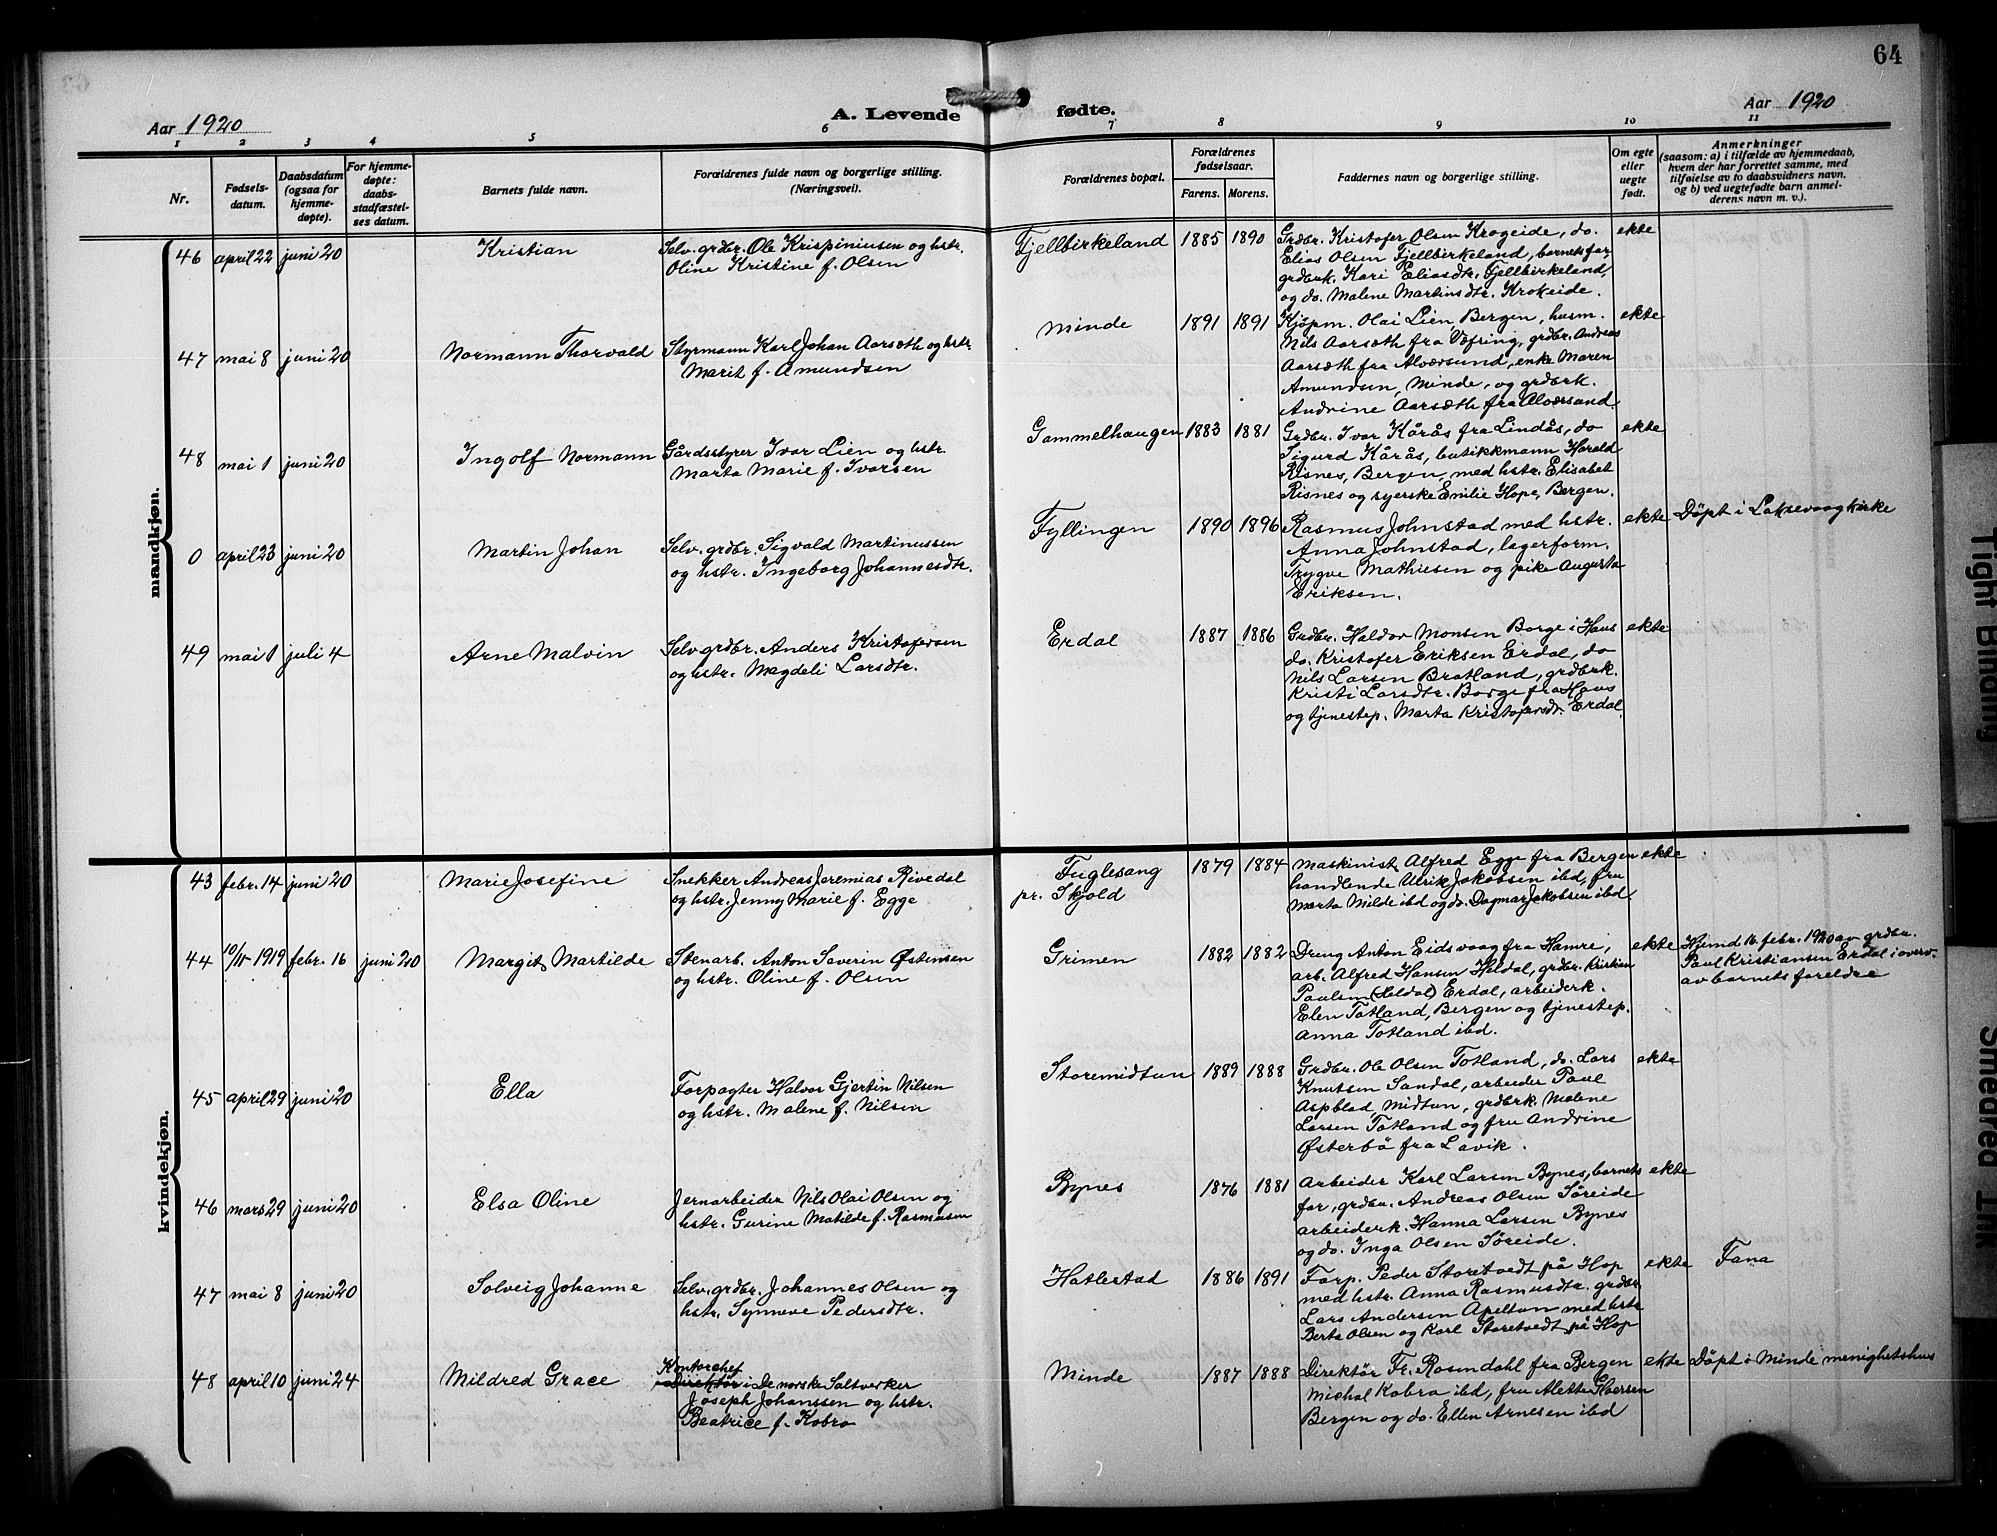 64
Aar 1920
A. Levende fødte.
Aar 1920
1 2 3 4 5 6 7 8 9 10 11
Nr.
Fødselsdatum.
Daabsdatum (ogsaa for hjemmedøpte).
For hjemmedøpte: daabsstadfæstelses datum.
Barnets fulde navn.
Forældrenes fulde navn og borgerlige stilling. (Næringsvei).
Forældrenes bopæl.
Forældrenes fødselsaar.
Farens. Morens.
Faddernes navn og borgerlige stilling.
Om egte eller uegte født.
Anmerkninger
(saasom: a) i tilfælde av hjemmedaab,
hvem der har forrettet samme, med
tilføielse av to daabsvidners navn,
og b) ved uegtefødte barn anmelderens navn m. v.).
mandkjøn.
46 april 22 juni 20 Kristian
Selv. grdbr. Ole Krispiniusen og hstr.
Oline Kristine f. Olsen
Fjellbirkeland 1885 1890
Grdbr. Kristofer Olsen Krogeide, do.
Elias Olsen Fjellbirkeland, barnets far,
grdbrk. Kari Eliasdtr. Fjellbirkeland,
og do. Malene Martinsdtr. Krokeide.
ekte
47 mai 8 juni 20 Normann Thorvald
Styrmann Karl Johan Aarsæth og hstr.
Marit f. Amundsen
Minde 1891 1891
Kjøpm. Olai Lien, Bergen, husm.
Nils Aarsæth fra Vefring, grdbr. Andreas
Aarsæth fra Alværsund, enke Maren
Amundsen, Minde, og grdbrk.
Andrine Aarsæth fra Alværsund.
ekte
48 mai 1 juni 20 Ingolf Normann
Gårdsstyrer Ivar Lien og hstr.
Marta Marie f. Ivarsen
Gammelhaugen 1883 1881
Grdbr. Ivar Kårås fra Lindås, do
Sigurd Kårås, butikkmann Harald
Risnes, Bergen, med hstr. Elisabet
Risnes og syerske Emilie Hope, Bergen.
ekte
0 april 23 juni 20 Martin Johan
Selv. grdbr. Sigvald Martinussen
og hstr. Ingeborg Johannesdtr.
Fyllingen 1890 1896
Rasmus Johnstad med hstr.
Anna Johnstad, lagerform.
Trygve Mathiesen og pike Augusta
Eriksen.
ekte Döpt i Laksevaag kirke
49 mai 1 juli 4 Arne Malvin
Selv. grdbr. Anders Kristofersen
og hstr. Magdeli Larsdtr.
Erdal 1887 1886
Grdbr. Haldor Monsen Borge i Haus
do. Kristofer Eriksen Erdal, do
Nils Larsen Bratland, grdbrk.
Kristi Larsdtr. Borge fra Haus
og tjenestep. Marta Kristofersdr. Erdal.
ekte
kvindekjøn.
43 febr. 14 juni 20 Marie Josefine
Snekker Andreas Jeremias Rivedal
og hstr. Jenny Marie f. Egge
Fuglesang
pr. Skjold
1879 1884
Maskinist Alfred Egge fra Bergen
handlende Ulrik Jakobsen ibd, fru
Marta Milde ibd og do. Dagmar Jakobsen ibd.
ekte
44 10/11 1919 febr. 16 juni 20 Margit Martilde
Stenarb. Anton Severin Østensen
og hstr. Oline f. Olsen
Grimen 1882 1882
Dreng Anton Eidsvaag fra Hamre,
arb. Alfred Hansen Heldal, grdbr. Kristian
Paulsen (Heldal) Erdal, arbeiderk.
Elen Totland, Bergen og tjenestep.
Anna Totland ibd.
ekte
Hjemd 16. febr. 1920 av grdbr.
Paul Kristiansen Erdal i overv.
av barnets foreldre
45 april 29 juni 20 Ella
Forpagter Halvor Gjertin Nilsen
og hstr. Malene f. Nilsen
Storemidtun 1889 1888
Grdbr. Ole Olsen Totland, do. Lars
Knutsen Sandal, arbeider Paul
Aspblad, Midtun, grdbrk. Malene
Larsen Totland og fru Andrine
Østerbö fra Lavik.
ekte
46 mars 29 juni 20 Elsa Oline
Jernarbeider Nils Olai Olsen og
hstr. Gurine Matilde f. Rasmusen
Bynes 1876 1881
Arbeider Karl Larsen Bynes, barnets
far, grdbr. Andreas Olsen Søreide
arbeiderk. Hanna Larsen Bynes
og do. Inga Olsen Søreide.
ekte
47 mai 8 juni 20 Solveig Johanne
Selv. grdbr. Johannes Olsen og
hstr. Synneve Pedersdtr.
Hatlestad 1886 1891
Forp. Peder Storetvedt på Hop
med hstr. Anna Rasmusdtr. grdbr.
Lars Andersen Apeltun med hstr
Berta Olsen og Karl Storetvedt på Hop
ekte Fana
48 april 10 juni 24 Mildred Grace
Kontorchef
Direktør i De norske Saltverker
Joseph Johanssen og hstr.
Beatrice f. Kobro
Minde 1887 1888
Direktør Fr. Rosendahl fra Bergen
Michal Kobro ibd, fru Alette
Bergen og do. Ellen Arnesen ibd
ekte Döpt i Minde menighetshus
Tight Binding
Smeared Ink